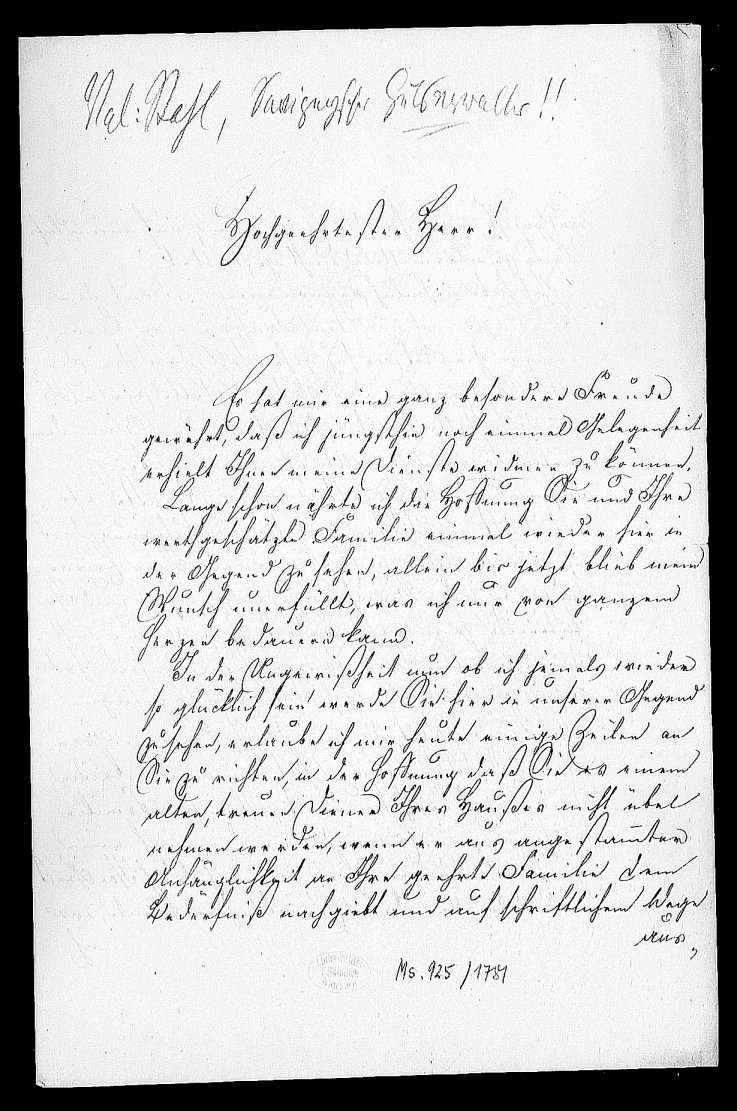 Vgl: Stahl, Savignyscher Gutsverwalter!!
Hochgeehrtester Herr!
Es hat mir eine ganz besondere Freude
gewährt, daß ich jüngsthin noch einmal Gelegenheit
erhielt Ihnen meine Dienste widmen zu können.
Lange schon nährte ich die Hoffnung Sie und Ihre
werthgeschätzte Familie einmal wieder hier in
der Gegend zu sehen, allein bis jetzt blieb mein
Wunsch unerfüllt, was ich nur von ganzem
Herzen bedauern kann.
In der Ungewißheit nun ob ich jemals wieder
so glücklich sein werde Sie hier in unserer Gegend
zu sehen, erlaube ich mir heute einige Zeilen an
Sie zu richten, in der Hoffnung daß Sie es einem
alten, treuen Diener Ihres Haußes nicht übel
nehmen werden, wenn er aus angestammter
Anhänglichkeit an Ihre geehrte Familie dem
Bedürfniß nachgiebt und auf schriftlichem Wege
aus,
Ms. 925/1781